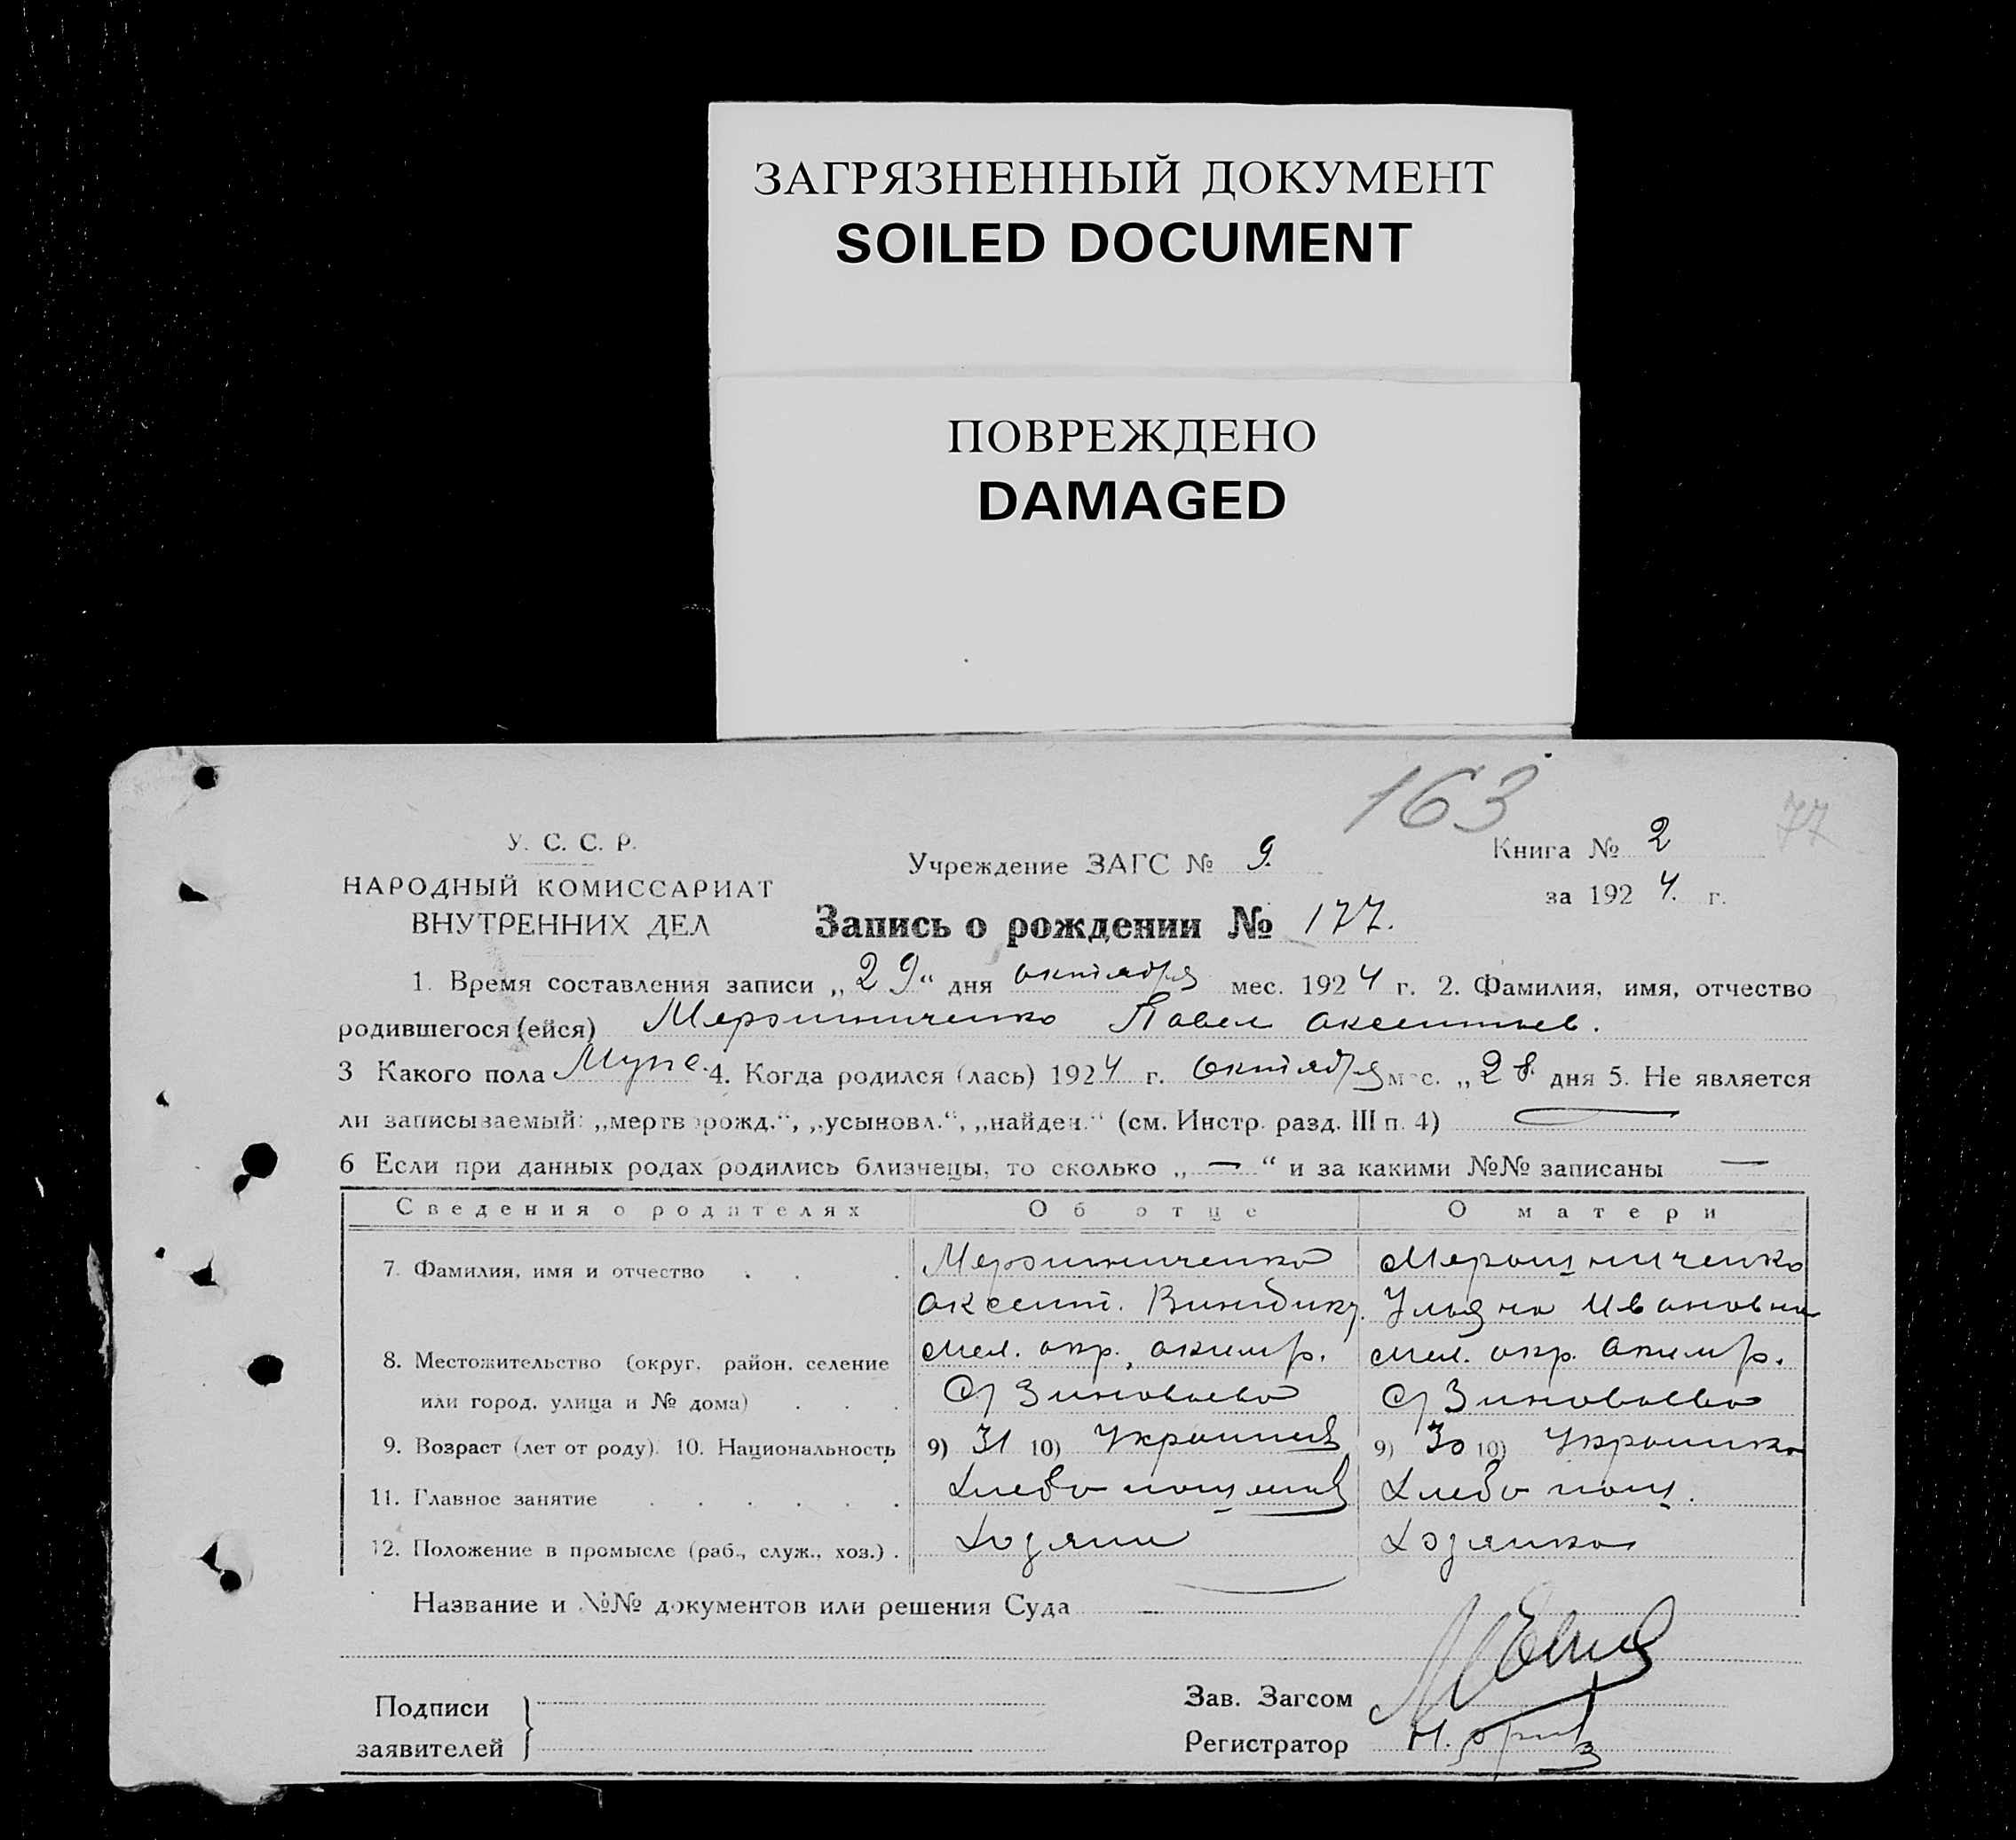 ЗАГРЯЗНЕННЫЙ ДОКУМЕНТ
SOILED DOCUMENT
ПОВРЕЖДЕНО
DAMAGED
163
77
У. С. С. Р.
НАРОДНЫЙ КОМИССАРИАТ
ВНУТРЕННИХ ДЕЛ
Учреждение ЗАГС № 9.
Книга № 2
за 1924. г.
Запись о рождении № 177.
1. Время составления записи „29“ дня октября мес. 1924 г. 2. Фамилия, имя, отчество
родившегося (ейся) Мерошниченко Павел Аксентьев.
3 Какого пола Муж. 4. Когда родился (лась) 1924 г. октября мес. „28. дня 5. Не является
ли записываемый: „мертворожд.“, „усыновл.“, „найден.“ (см. Инстр. разд. III п. 4) —
6 Если при данных родах родились близнецы, то сколько „—“ и за какими №№ записаны —
Сведения о родителях Об отце О матери
7. Фамилия, имя и отчество . . . Мерошниченко Мерошниченко
Аксент. Ульяна Ивановна
8. Местожительство (округ, район, селение Мел. окр., Аким р. Мел. окр. Аким р.
или город, улица и № дома) . . . с/ Зиновьево с/ Зиновьево
9. Возраст (лет от роду). 10. Национальность 9) 31 10) Украинец 9) 30 10) Украинка
11. Главное занятие . . . . . . Хлебопашец Хлебопаш.
12. Положение в промысле (раб., служ., хоз.) . Хозяин Хозяйка
Название и №№ документов или решения Суда —
Подписи
заявителей
Зав. Загсом
Регистратор